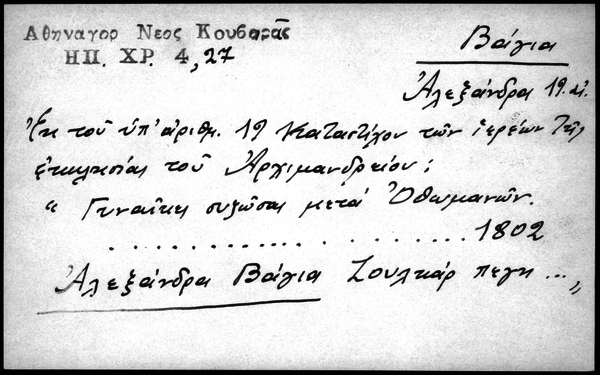 Αθηναγορ Νεος Κουβαρᾶς
ΗΠ. ΧΡ. 4, 27
Βάγια
Ἀλεξάνδρα 19. αἰ.
Ἐκ τοῦ ὑπ' ἀριθμ. 19 Καταστίχου τῶν ἱερέων τῆς
ἐκκλησίας τοῦ Ἀρχιμανδρείου:
“ Γυναῖκες συζῶσαι μετά Ὀθωμανῶν.
. . . . . . . . . . . . . . . . . . 1802
Ἀλεξάνδρα Βάγια Ζουλκάρ πεγη ... „